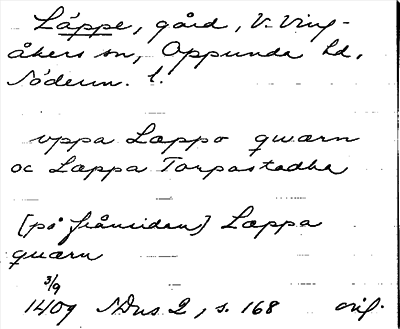 Läppe, gård, V. Ving-
åkers sn, Oppunda hd,
Söderm. l.
vppa Læppo qwærn
oc Læppa Torpastadha
[på frånsidan] Læppa
qwærn
3/9
1409 NDns 2, s. 168 orig.